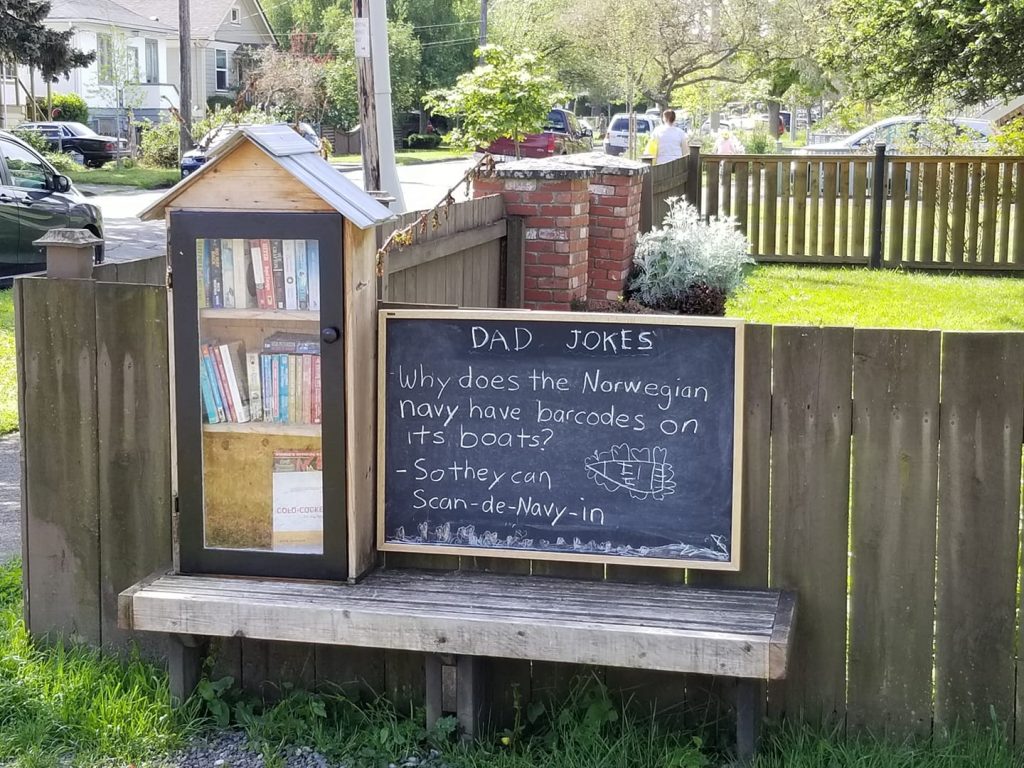 DAD JOKES
-Why does the Norwegian
navy have barcodes on
its boats?
- So they can
Scan-de-Navy-in
COLD-COCKED